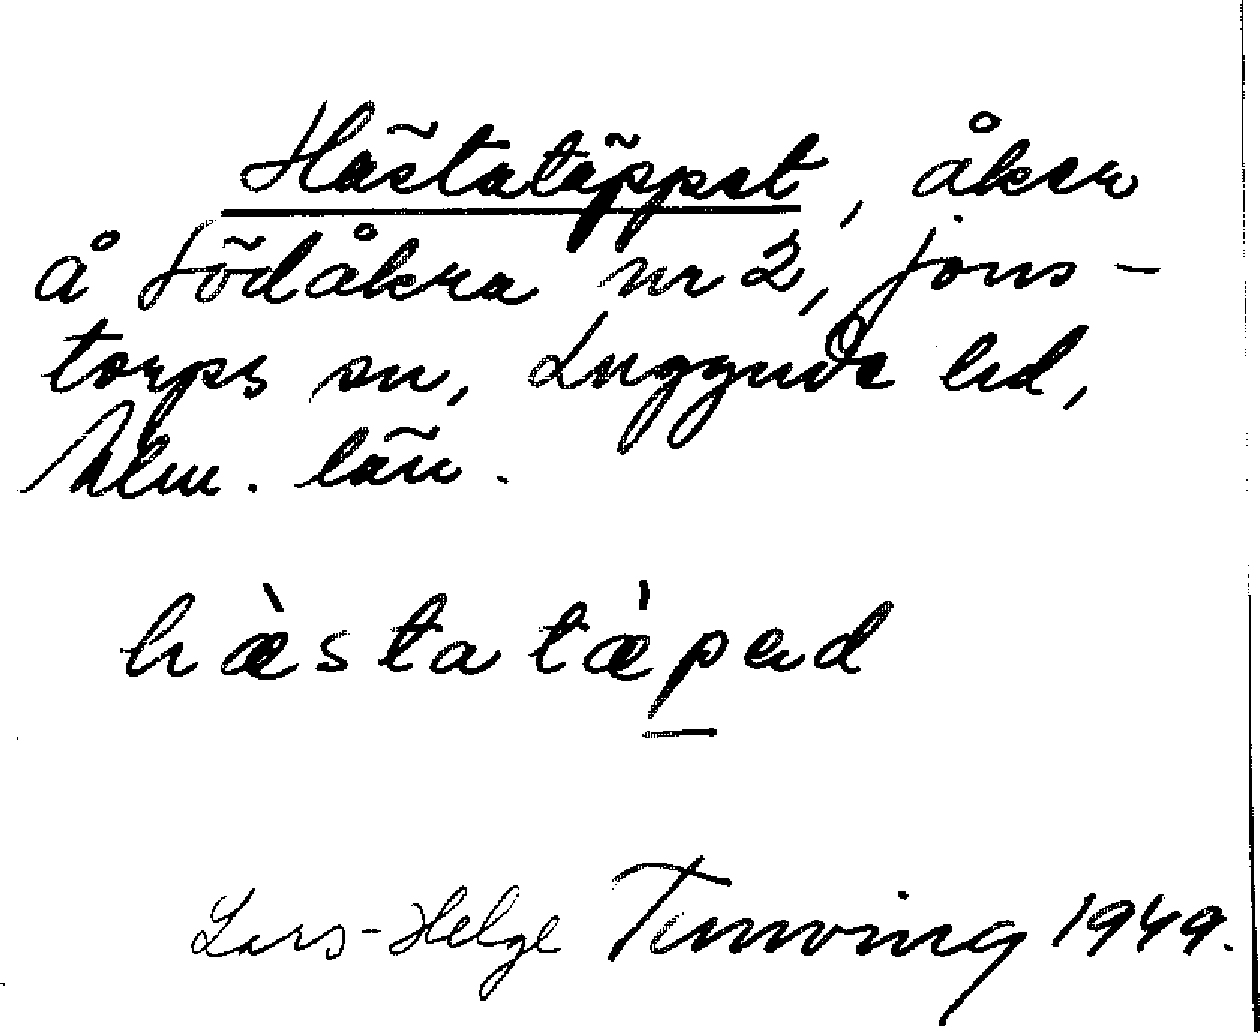 Hästatäppet, åker
å Södåkra nr 2, Jons-
torps sn, Luggude hd,
Mlm. län.
hæ̀statæ̍pəd
Lars-Helge Temving 1949.